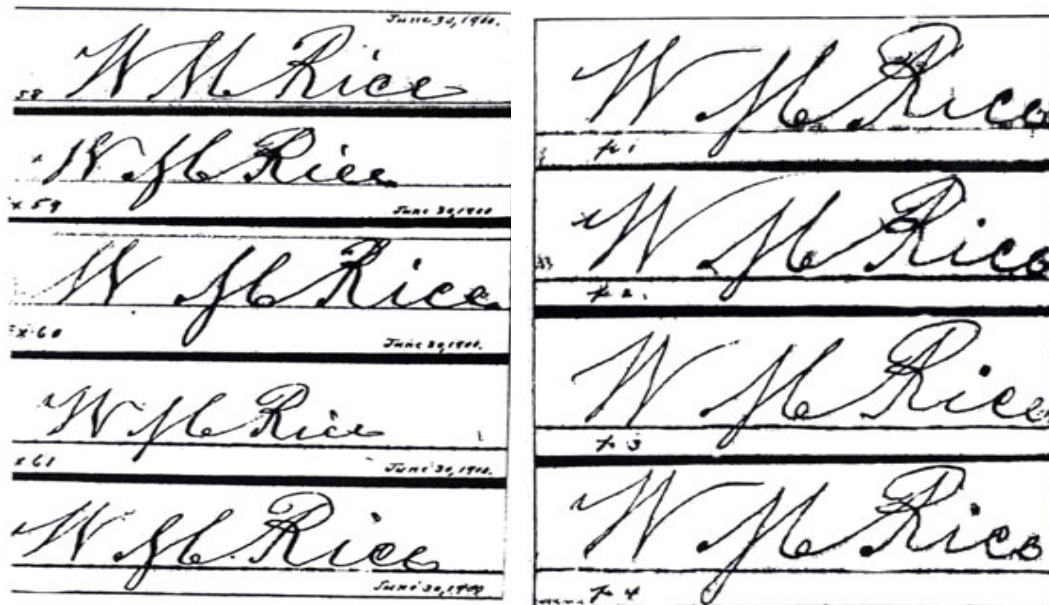 June 30, 1900.
W M Rice
58
W M Rice
x 59 June 30, 1900
W M Rice
x 60 June 30, 1900.
W M Rice
x 61 June 30, 1900.
W M Rice
June 30, 1900
W M Rice
x 1
W M Rice
x 2.
W M Rice
x 3
W M Rice
x 4